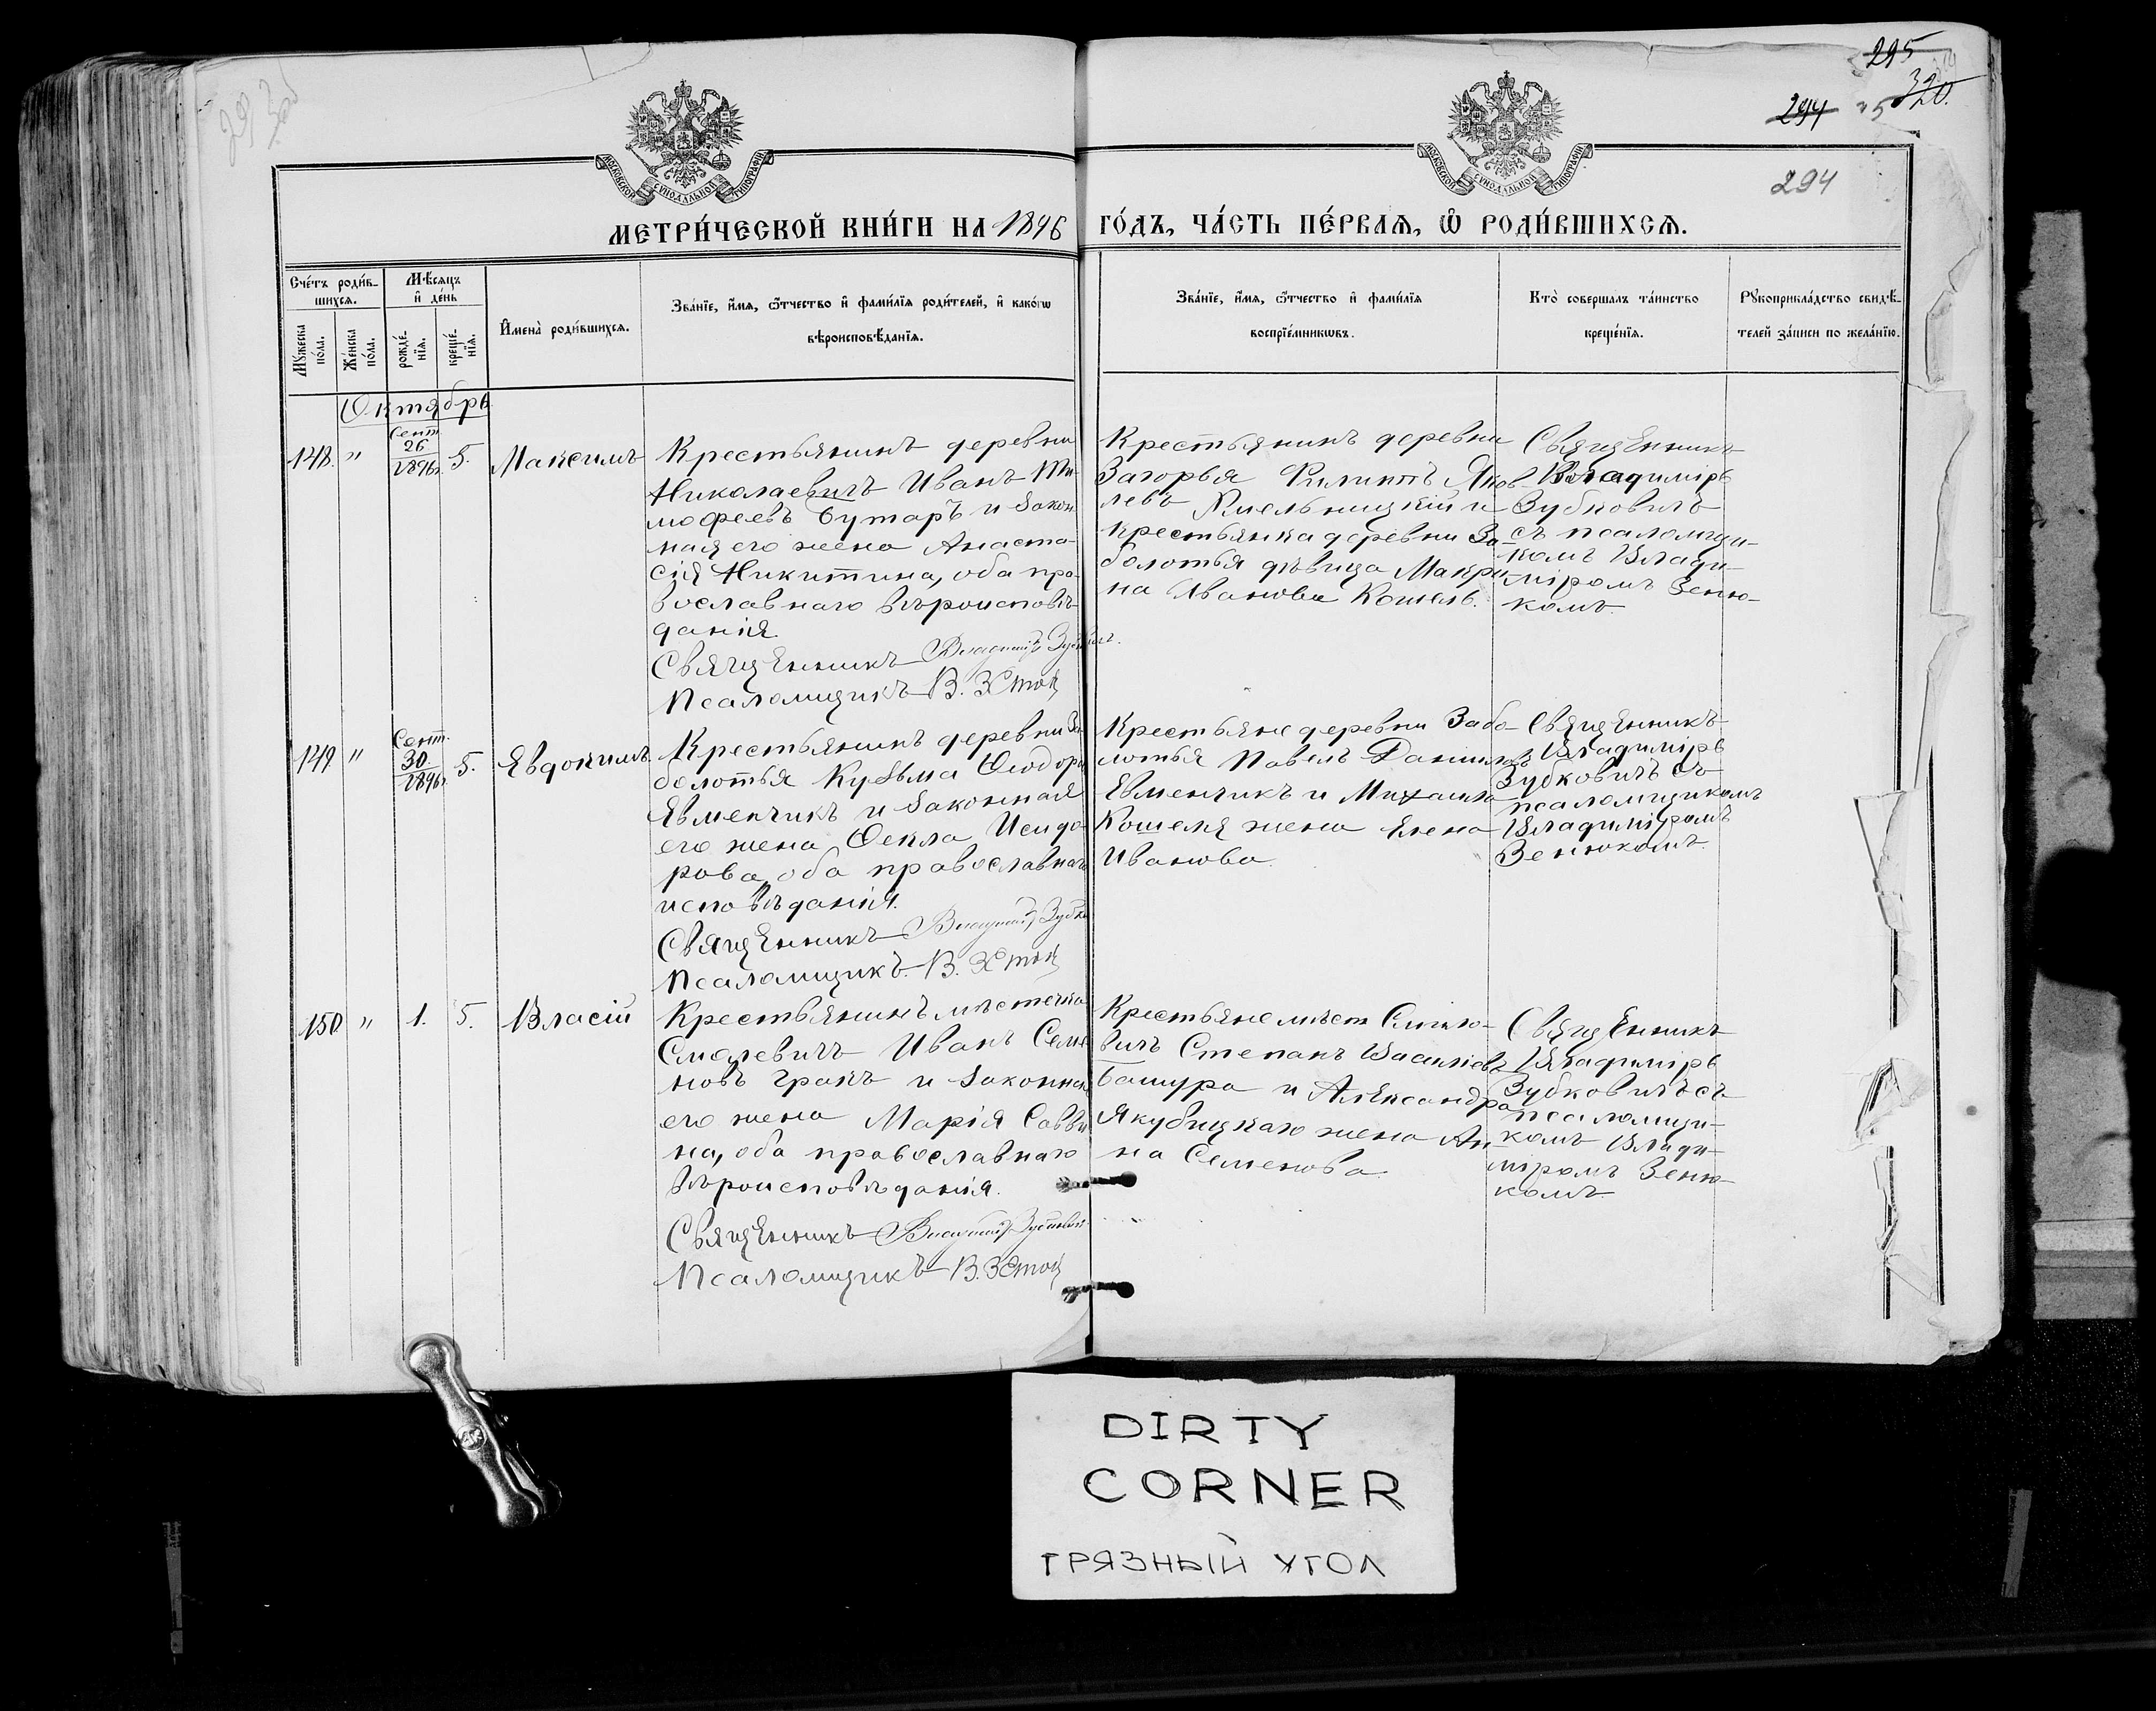 295
320.
294
294
МОСКОВСКОЙ СѴНОДАЛЬНОЙ ТИПОГРАФІИ
МОСКОВСКОЙ СѴНОДАЛЬНОЙ ТИПОГРАФІИ
МЕТРИ́ЧЕСКОЙ КНИ́ГИ НА 1896 ГО́ДЪ, ЧА́СТЬ ПЕ́РВАѦ, Ѽ РОДИ́ВШИХСѦ.
Сче́тъ роди́в-
шихсѧ.
Мѣ́сѧцъ
и҆ де́нь
Мꙋ́жеска
по́ла.
Же́нска
по́ла.
рожде́-
нїѧ.
креще́-
нїѧ.
И҆мена̀ роди́вшихсѧ.
Зва́нїе, и҆́мѧ, ѻ҆́тчество и҆ фами́лїѧ роди́телей, и҆ како́гѡ
вѣроисповѣ́данїѧ.
Зва́нїе, и҆́мѧ, ѻ҆́тчество и҆ фами́лїѧ
воспрїе́мникѡвъ.
Кто̀ соверша́лъ та́инство
креще́нїѧ.
Рꙋкоприкла́дство свидѣ́-
телей за́писи по жела́нїю.
Октябрь
148. " Сент. 26 1896 г. 5. Максимъ
Крестьянинъ деревни
Николаевичъ Иванъ Ти-
мофеевъ Бутаръ и закон
ная его жена Анаста-
сія Никитина, оба пра-
вославнаго вѣроисповѣ-
данія.
Священникъ Владиміръ Зубковичъ.
Псаломщикъ В. Зенюк
Крестьянинъ деревни
Загорья Филиппъ Яков-
левъ Хмельницкій и
крестьянка деревни За-
болотья дѣвица Макри-
на Иванова Кошель.
Священникъ
Владиміръ
Зубковичъ
съ псаломщи-
комъ Влади-
міромъ Зеню-
комъ.
149 " Сент. 30 1896 г. 5. Евдокимъ
Крестьянинъ деревни За-
болотья Кузьма Ѳеодоровъ
Евменчикъ и законная
его жена Ѳекла Исидо-
рова, оба православнаго
исповѣданія.
Священникъ Владиміръ Зубко
Псаломщикъ В. Зенюк
Крестьяне деревни Забо-
лотья Павелъ Даниловъ
Евменчикъ и Михаила
Кошеля жена Елена
Иванова.
Священникъ
Владиміръ
Зубковичъ съ
псаломщикомъ
Владиміромъ
Зенюкомъ.
150 " 1. 5. Власій
Крестьянинъ мѣстечка
Смолевичъ Иванъ Семе
новъ Гракъ и законная
его жена Марія Савви
на, оба православнаго
вѣроисповѣданія.
Священникъ Владиміръ Зубкович
Псаломщикъ В. Зенюк
Крестьяне мѣст. Смоле-
вичъ Степанъ Васильевъ
Башура и Александра
Якубицкаго жена Ан-
на Семенова.
Священникъ
Владиміръ
Зубковичъ съ
псаломщи-
комъ Влади-
міромъ Зеню-
комъ
DIRTY
CORNER
ГРЯЗНЫЙ УГОЛ